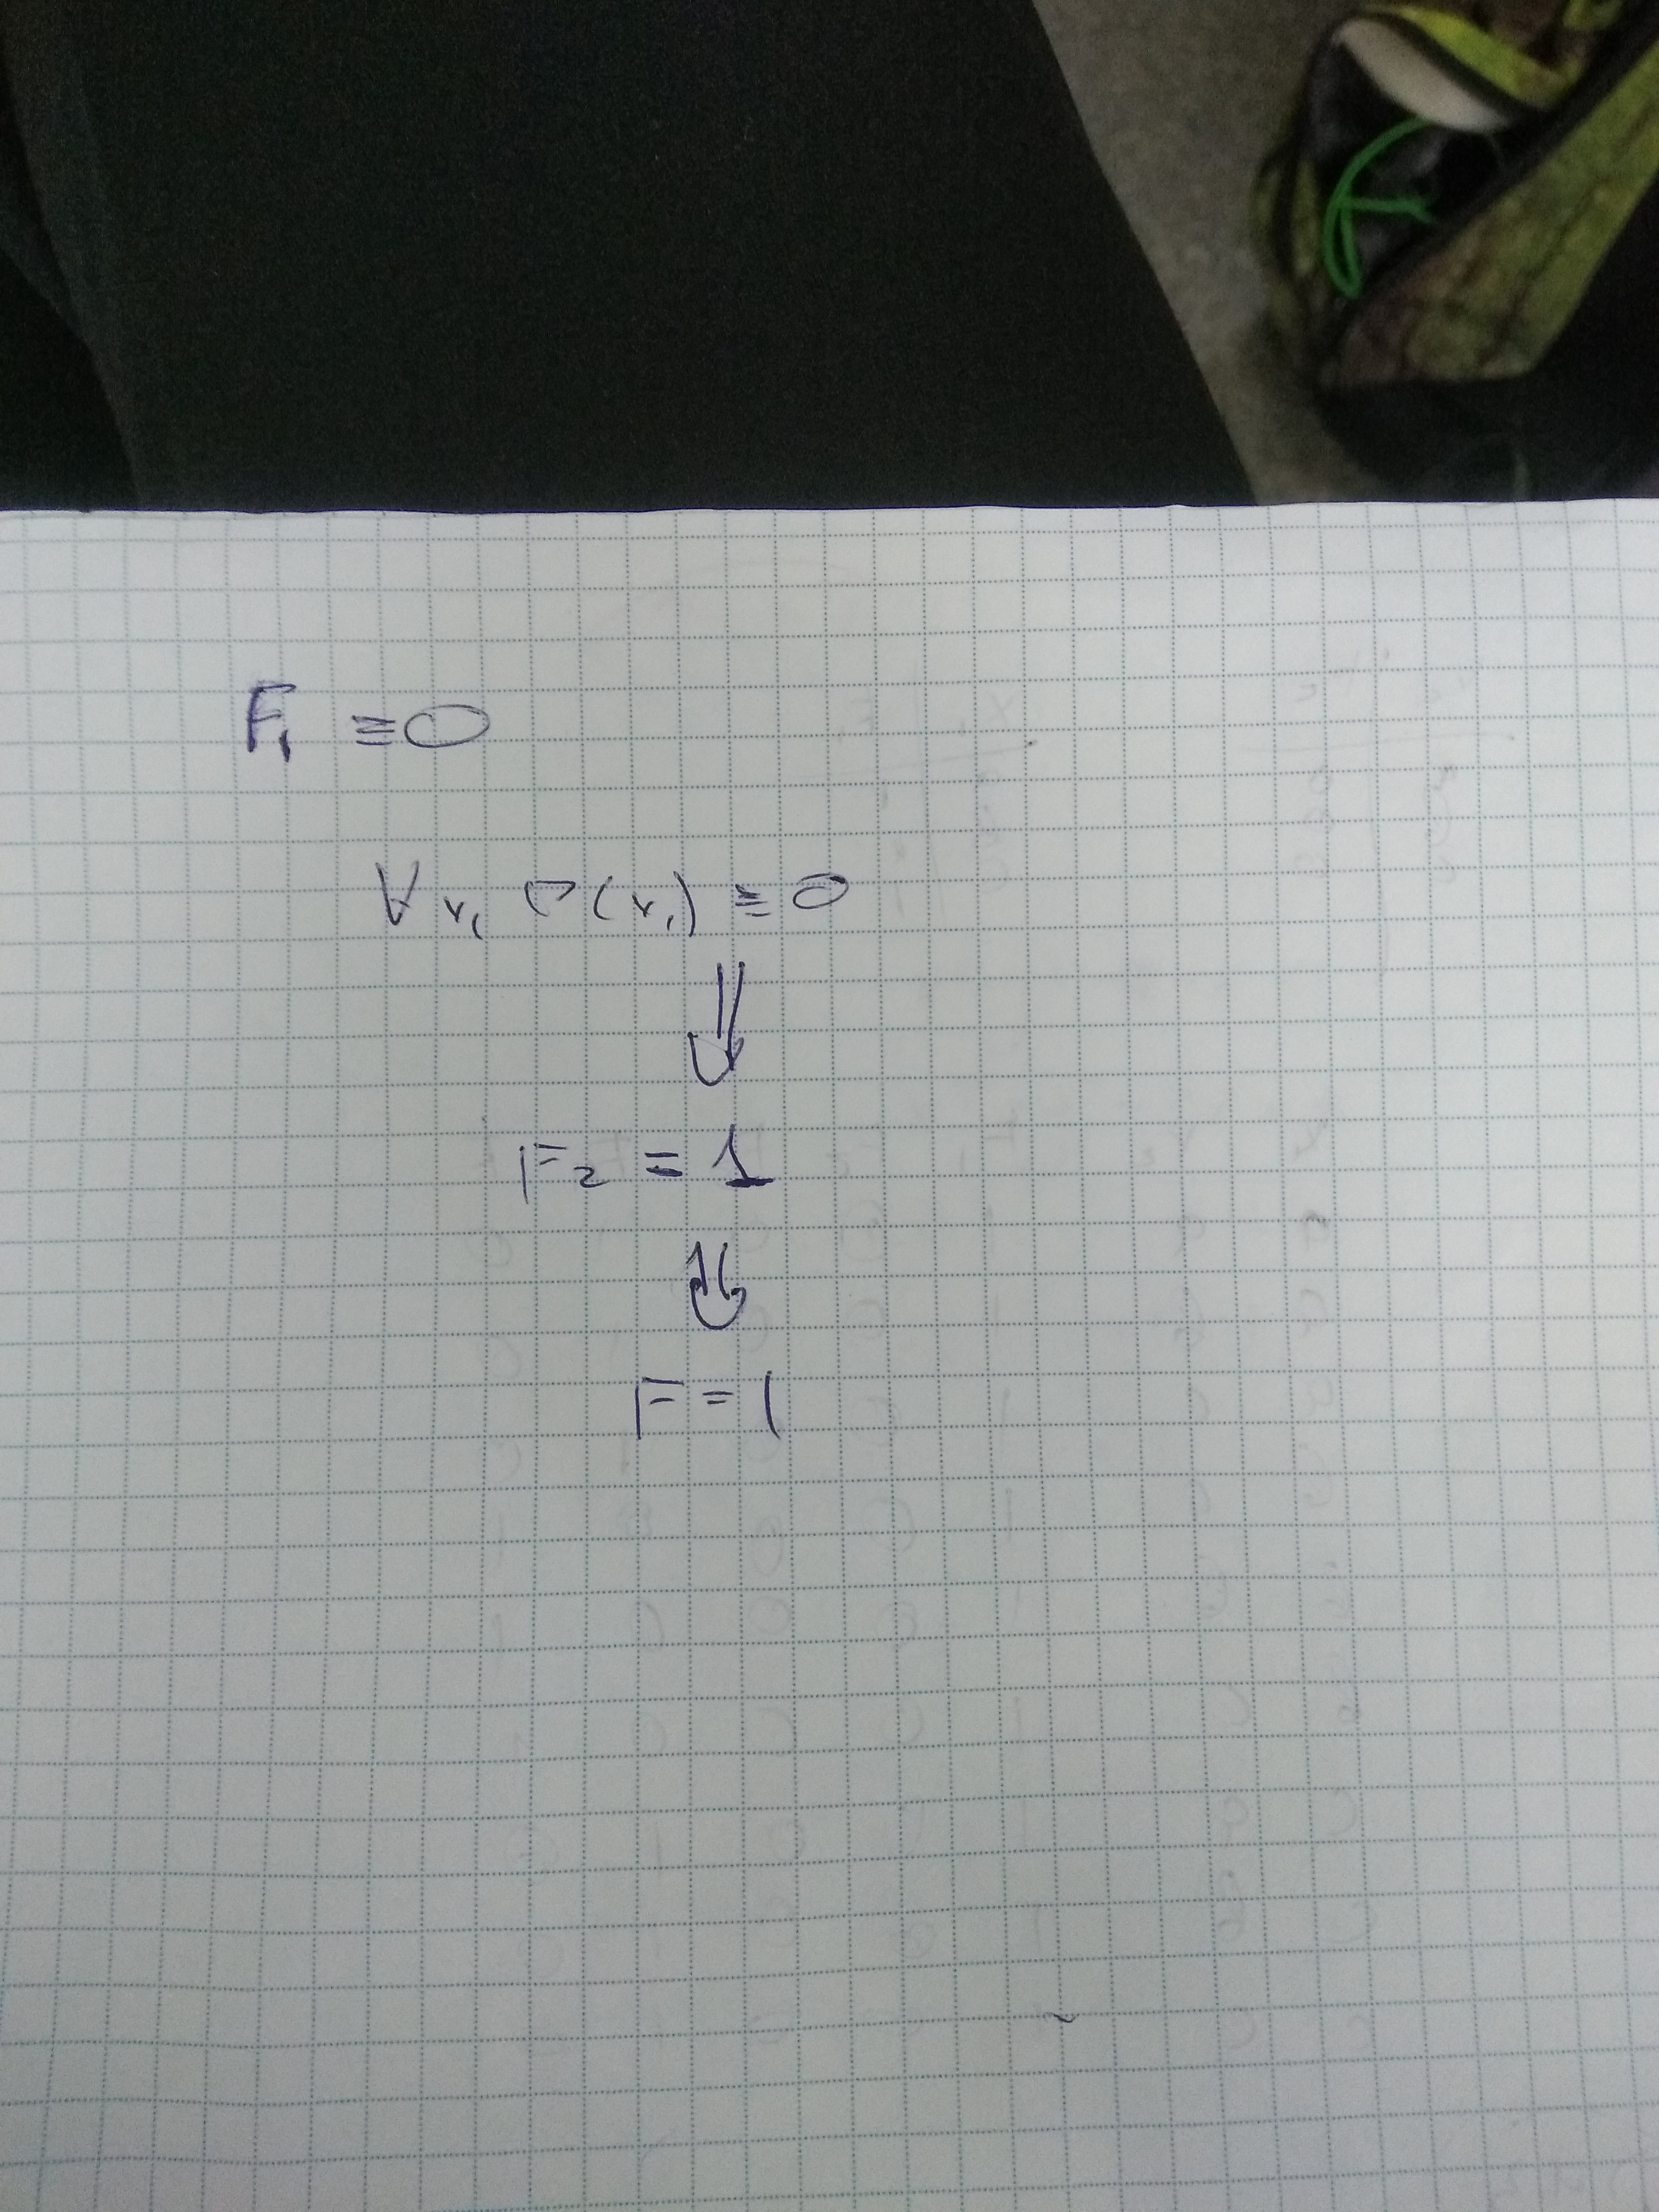 F₁ ≡ 0
∀x₁ P(x₁) ≡ 0
⇓
F₂ = 1
⇓
F = 1